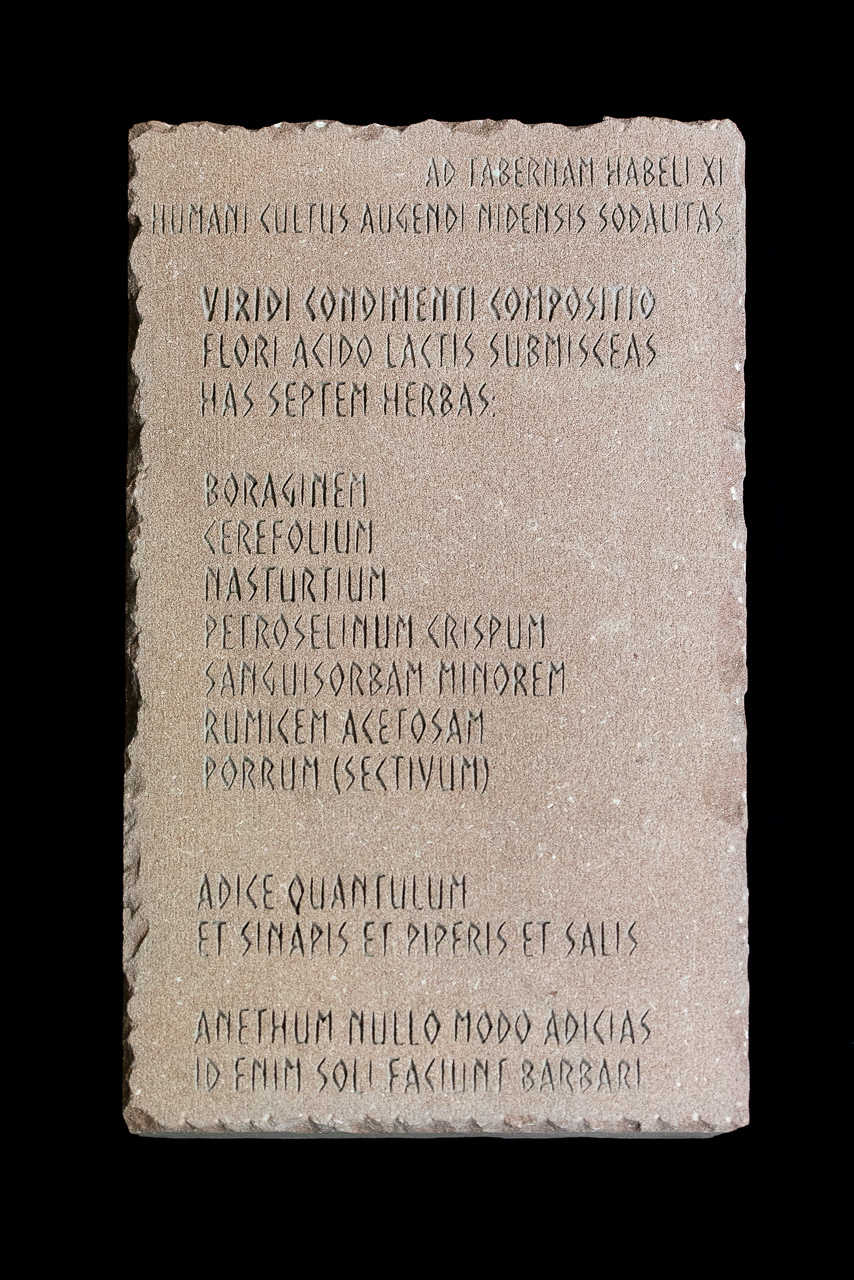 AD TABERNAM HABELI XI
HUMANI CULTUS AUGENDI NIDENSIS SODALITAS
VIRIDI CONDIMENTI COMPOSITIO
FLORI ACIDO LACTIS SUBMISCEAS
HAS SEPTEM HERBAS:
BORAGINEM
CEREFOLIUM
NASTURTIUM
PETROSELINUM CRISPUM
SANGUISORBAM MINOREM
RUMICEM ACETOSAM
PORRUM (SECTIVUM)
ADICE QUANTULUM
ET SINAPIS ET PIPERIS ET SALIS
ANETHUM NULLO MODO ADICIAS
ID ENIM SOLI FACIUNT BARBARI